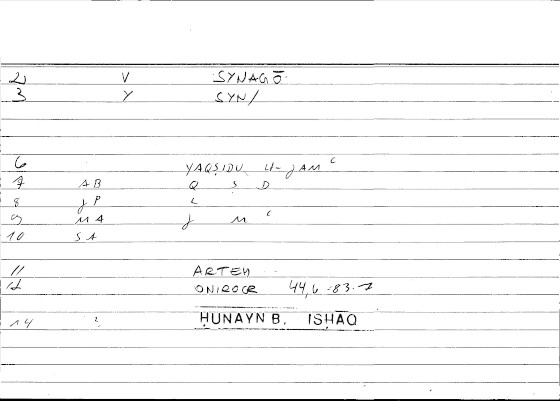 2 V SYNAGŌ
3 Y SYN/
6 YAQṢIDU L-JAMʿ
7 AB Q Ṣ D
8 JP L
9 MA J M ʿ
10 SA
11 ARTEM
12 ONIROCR 44,6-83.7
14 2 ḤUNAYN B. ISḤĀQ